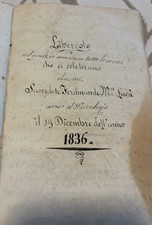 Libercolo
nel quale si annotano tutte le messe
che si celebrano
da me
Sacerdote Ferdinando M.ª
il 19 Dicembre dell'anno
1836